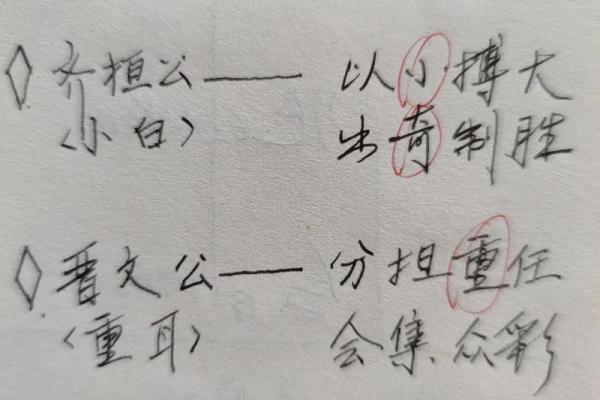 ◇齐桓公——以小搏大
〈小白〉 出奇制胜
◇晋文公——分担重任
〈重耳〉 会集众彩